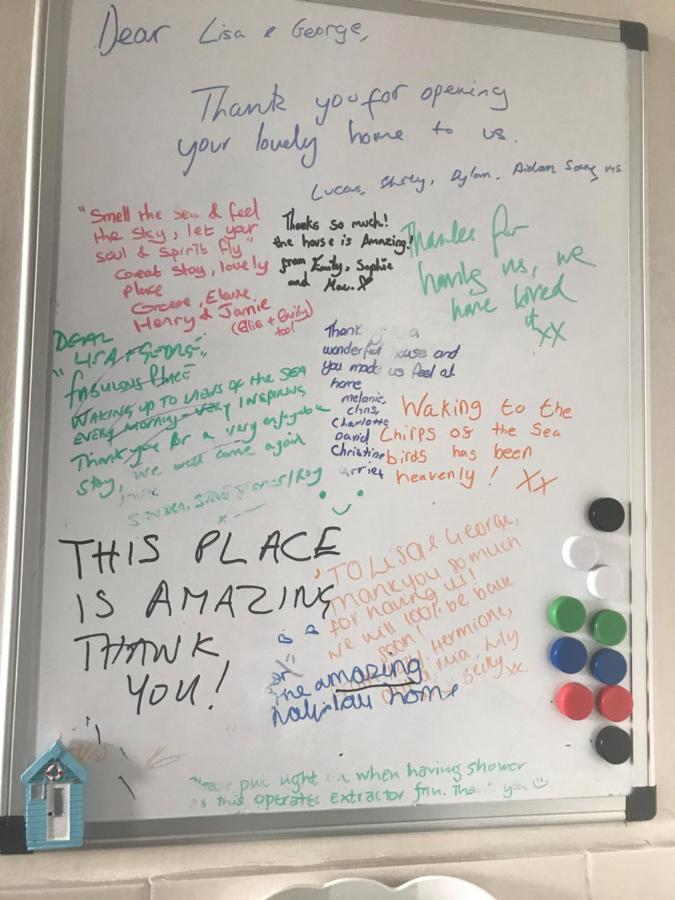 Dear Lisa & George,
Thank you for opening
your lovely home to us.
Lucas, Dylan, Aidan
"Smell the sea & feel
the sky, let your
soul & spirit fly"
Great stay, lovely
place
Graeme, Elaine,
Henry & Jamie
(Ellie + Emily
too!)
Thanks so much!
the house is Amazing!
from Emily, Sophie
and Max.
Thanks for
having us, we
have loved
it xx
DEAR
"LISA + GEORGE"
FABULOUS PLACE
WAKING UP TO VIEWS OF THE SEA
EVERY MORNING - VERY INSPIRING
Thank you for a very enjoyable
stay, we will come again
Thank a
wonderful house and
you made us feel at
home
melanie,
chris,
Charlotte
David
Christine
arriet
Waking to the
Chirps of the Sea
birds has been
heavenly! XX
THIS PLACE
IS AMAZING
THANK
YOU!
TO Lisa & George,
Thank you so much
for having us!
We will 100% be back
soon!
Hermione,
Mia, Lily
Becky xx.
amazing
home
put light on when having shower
as this operates extractor fan. Thank you